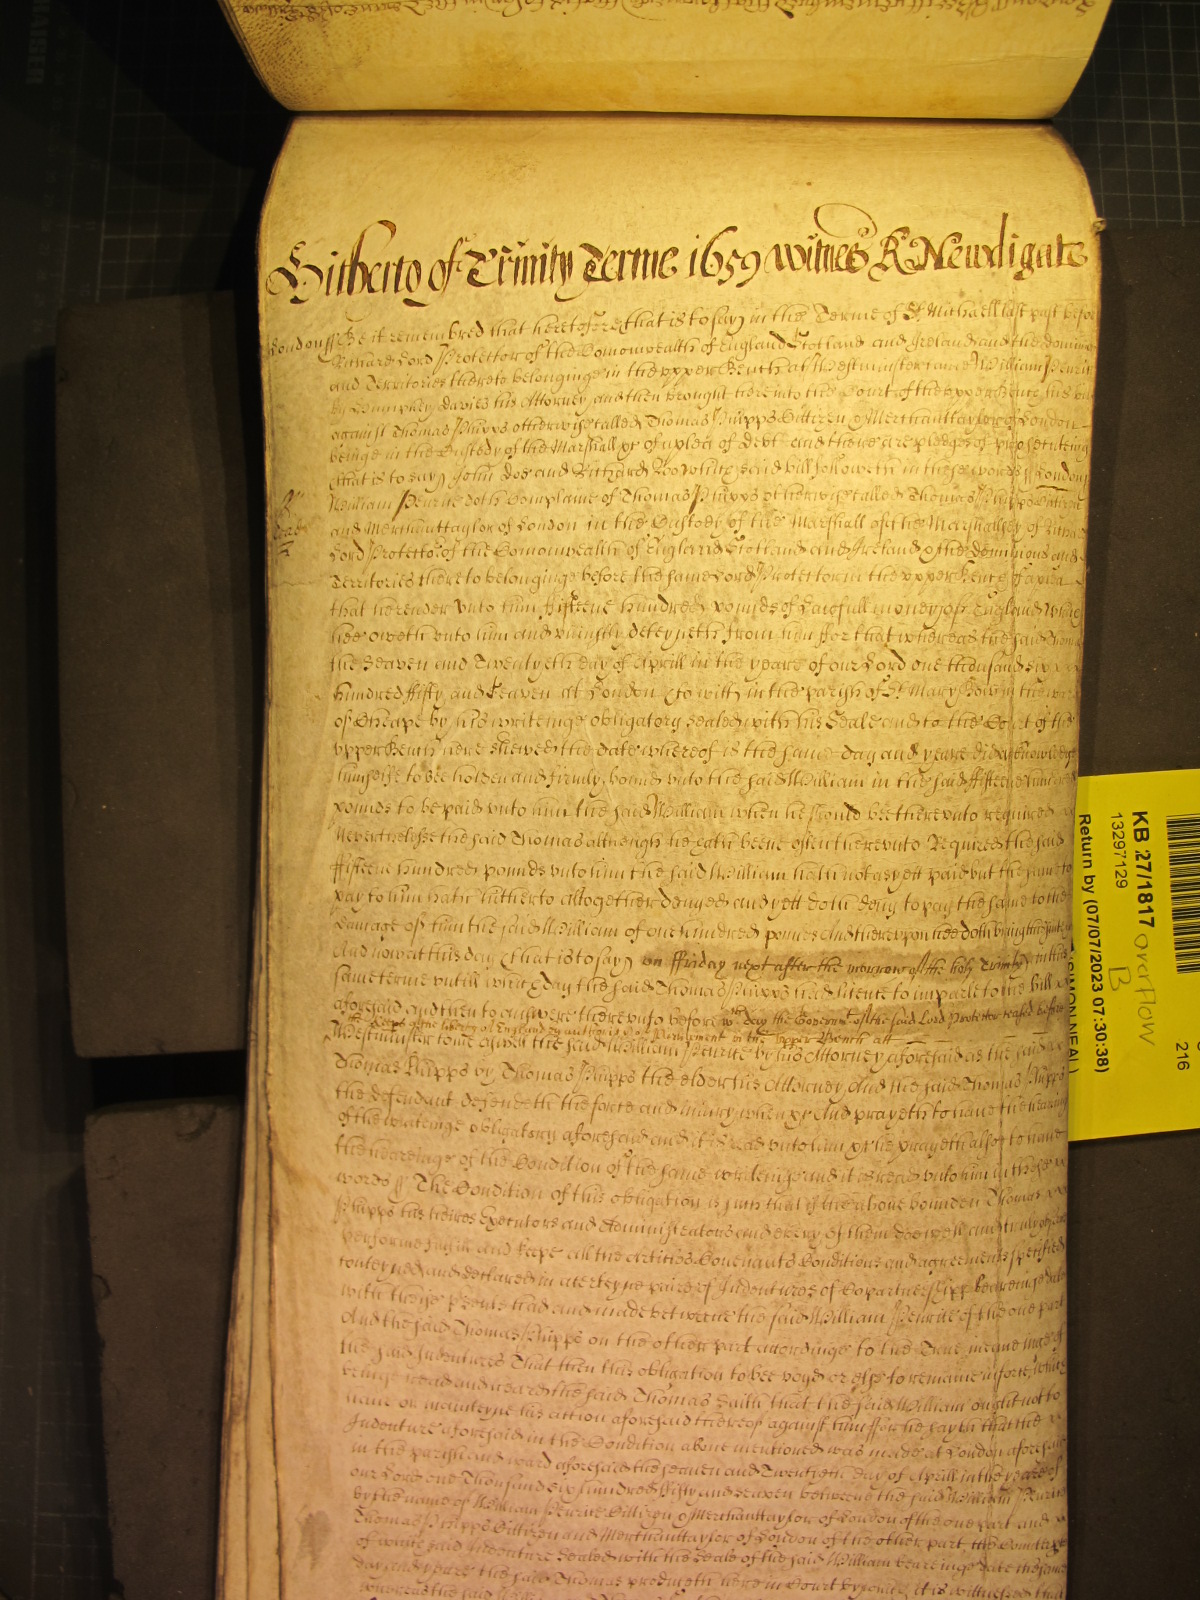 Hitherto of Trinity Terme 1659 witnes R Newdigate
London ss Be it remembred that heretofore that is to say in the Terme of St Michaell last past before
Richard Lord Protector of the Comonwealth of England Scotland and Ireland and the dominions
and Territories thereto belonginge in the upper Bench at Westminster came William
by Humphrey Davies his Attorney and then brought here into the Court of the upper Bench his bill
against Thomas Phipps otherwise called Thomas Phipps Cittizen & Merchanttaylor of London
beinge in the Custody of the Marshall &c of a plea of Debt and there are pledges of prosecuteing
that is to say John Doe and Richard Roe which said bill followeth in these words ss London
William doth Complaine of Thomas Phipps otherwise called Thomas Phipps Cittizen
and Merchanttaylor of London in the Custody of the Marshall of the Marshallsey of Richard
Lord Protector of the Comonwealth of England Scotland and Ireland & the Dominions and
Territories thereto belonginge before the same Lord Protector in the upper Bench
that he render unto him fifteene hundred pounds of Lawfull money of England which
hee oweth unto him and uniustly deteyneth from him ffor that whereas the said Thomas
the Seaven and Twentyeth day of Aprill in the yeare of our Lord one thousand six
hundred fifty and Seaven at London to witt in the parish of St Mary Bow in the ward
of Cheape by his writeinge obligatory sealed with his Seale and to the Court of the
upper Bench here shewed the date whereof is the same day and yeare did acknowledge
himselfe to bee holden and firmly bound unto the said William in the said fifteene hundred
pounds to be paid unto him the said William when he should bee thereunto required
Neverthelesse the said Thomas although he hath beene often thereunto Required the said
fifteene hundred pounds unto him the said William hath not as yett paid but the same to
pay to him hath hitherto altogether denyed and yett doth deny to pay the same to the
Damage of him the said William of one hundred pounds And thereupon hee doth bring the suite
And now at this day that is to say on ffriday next after the morrow of the holy Trinity in this
same terme untill which day the said Thomas Phipps had licence to imparle to the bill
aforesaid and then to answere thereunto before wch day the Governmt of the said Lord Protector ceased before
the keepers of the liberty of England by authority of Parliament in the Upper Bench att
Westminster come aswell the said William by his Attorney aforesaid as the said
Thomas Phipps by Thomas Phipps the elder his Attorney And the said Thomas Phipps
the defendant defendeth the force and iniury when &c And prayeth to have the heareing
of the writeinge obligatory aforesaid and it is read unto him &c he prayeth also to have
the heareinge of the Condition of the same writeinge and it is read unto him in these
words ss The Condition of this obligation is such that if the above bounden Thomas
Phipps his heires Executors and Administrators and every of them doe well and truly
performe fulfill and keepe all the articles Covenants Conditions and agreements specified
conteyned and declared in a certeyne paire of Indentures of Copartnershipp beareinge date
with theise presents had and made betweene the said William of the one part
And the said Thomas Phipps on the other part accordinge to the true meaneinge of
the said Indentures That then this obligation to bee voyd or else to remaine in force which
beinge read and heard the said Thomas Saith that the said William ought not to
have or mainteyne his action aforesaid thereof against him ffor he sayth that the
Indenture aforesaid in the Condition above mentioned was made at London aforesaid
in the parish and ward aforesaid the seaven and Twentieth day of Aprill in the yeare of
our Lord one Thousand six hundred fifty and seaven betweene the said William
by the name of William Cittizen & Merchanttaylor of London of the one part and
Thomas Phipps Cittizen and Merchanttaylor of London of the other part
of which said Indenture Sealed with the Seale of the said William beareinge date the same
day and yeare the said Thomas produceth here in Court it is witnessed that
whereas the said
KB 27/1817 overflow
B
13297129
Return by (07/07/2023 07:30:38)
SIMON NEAL)
216